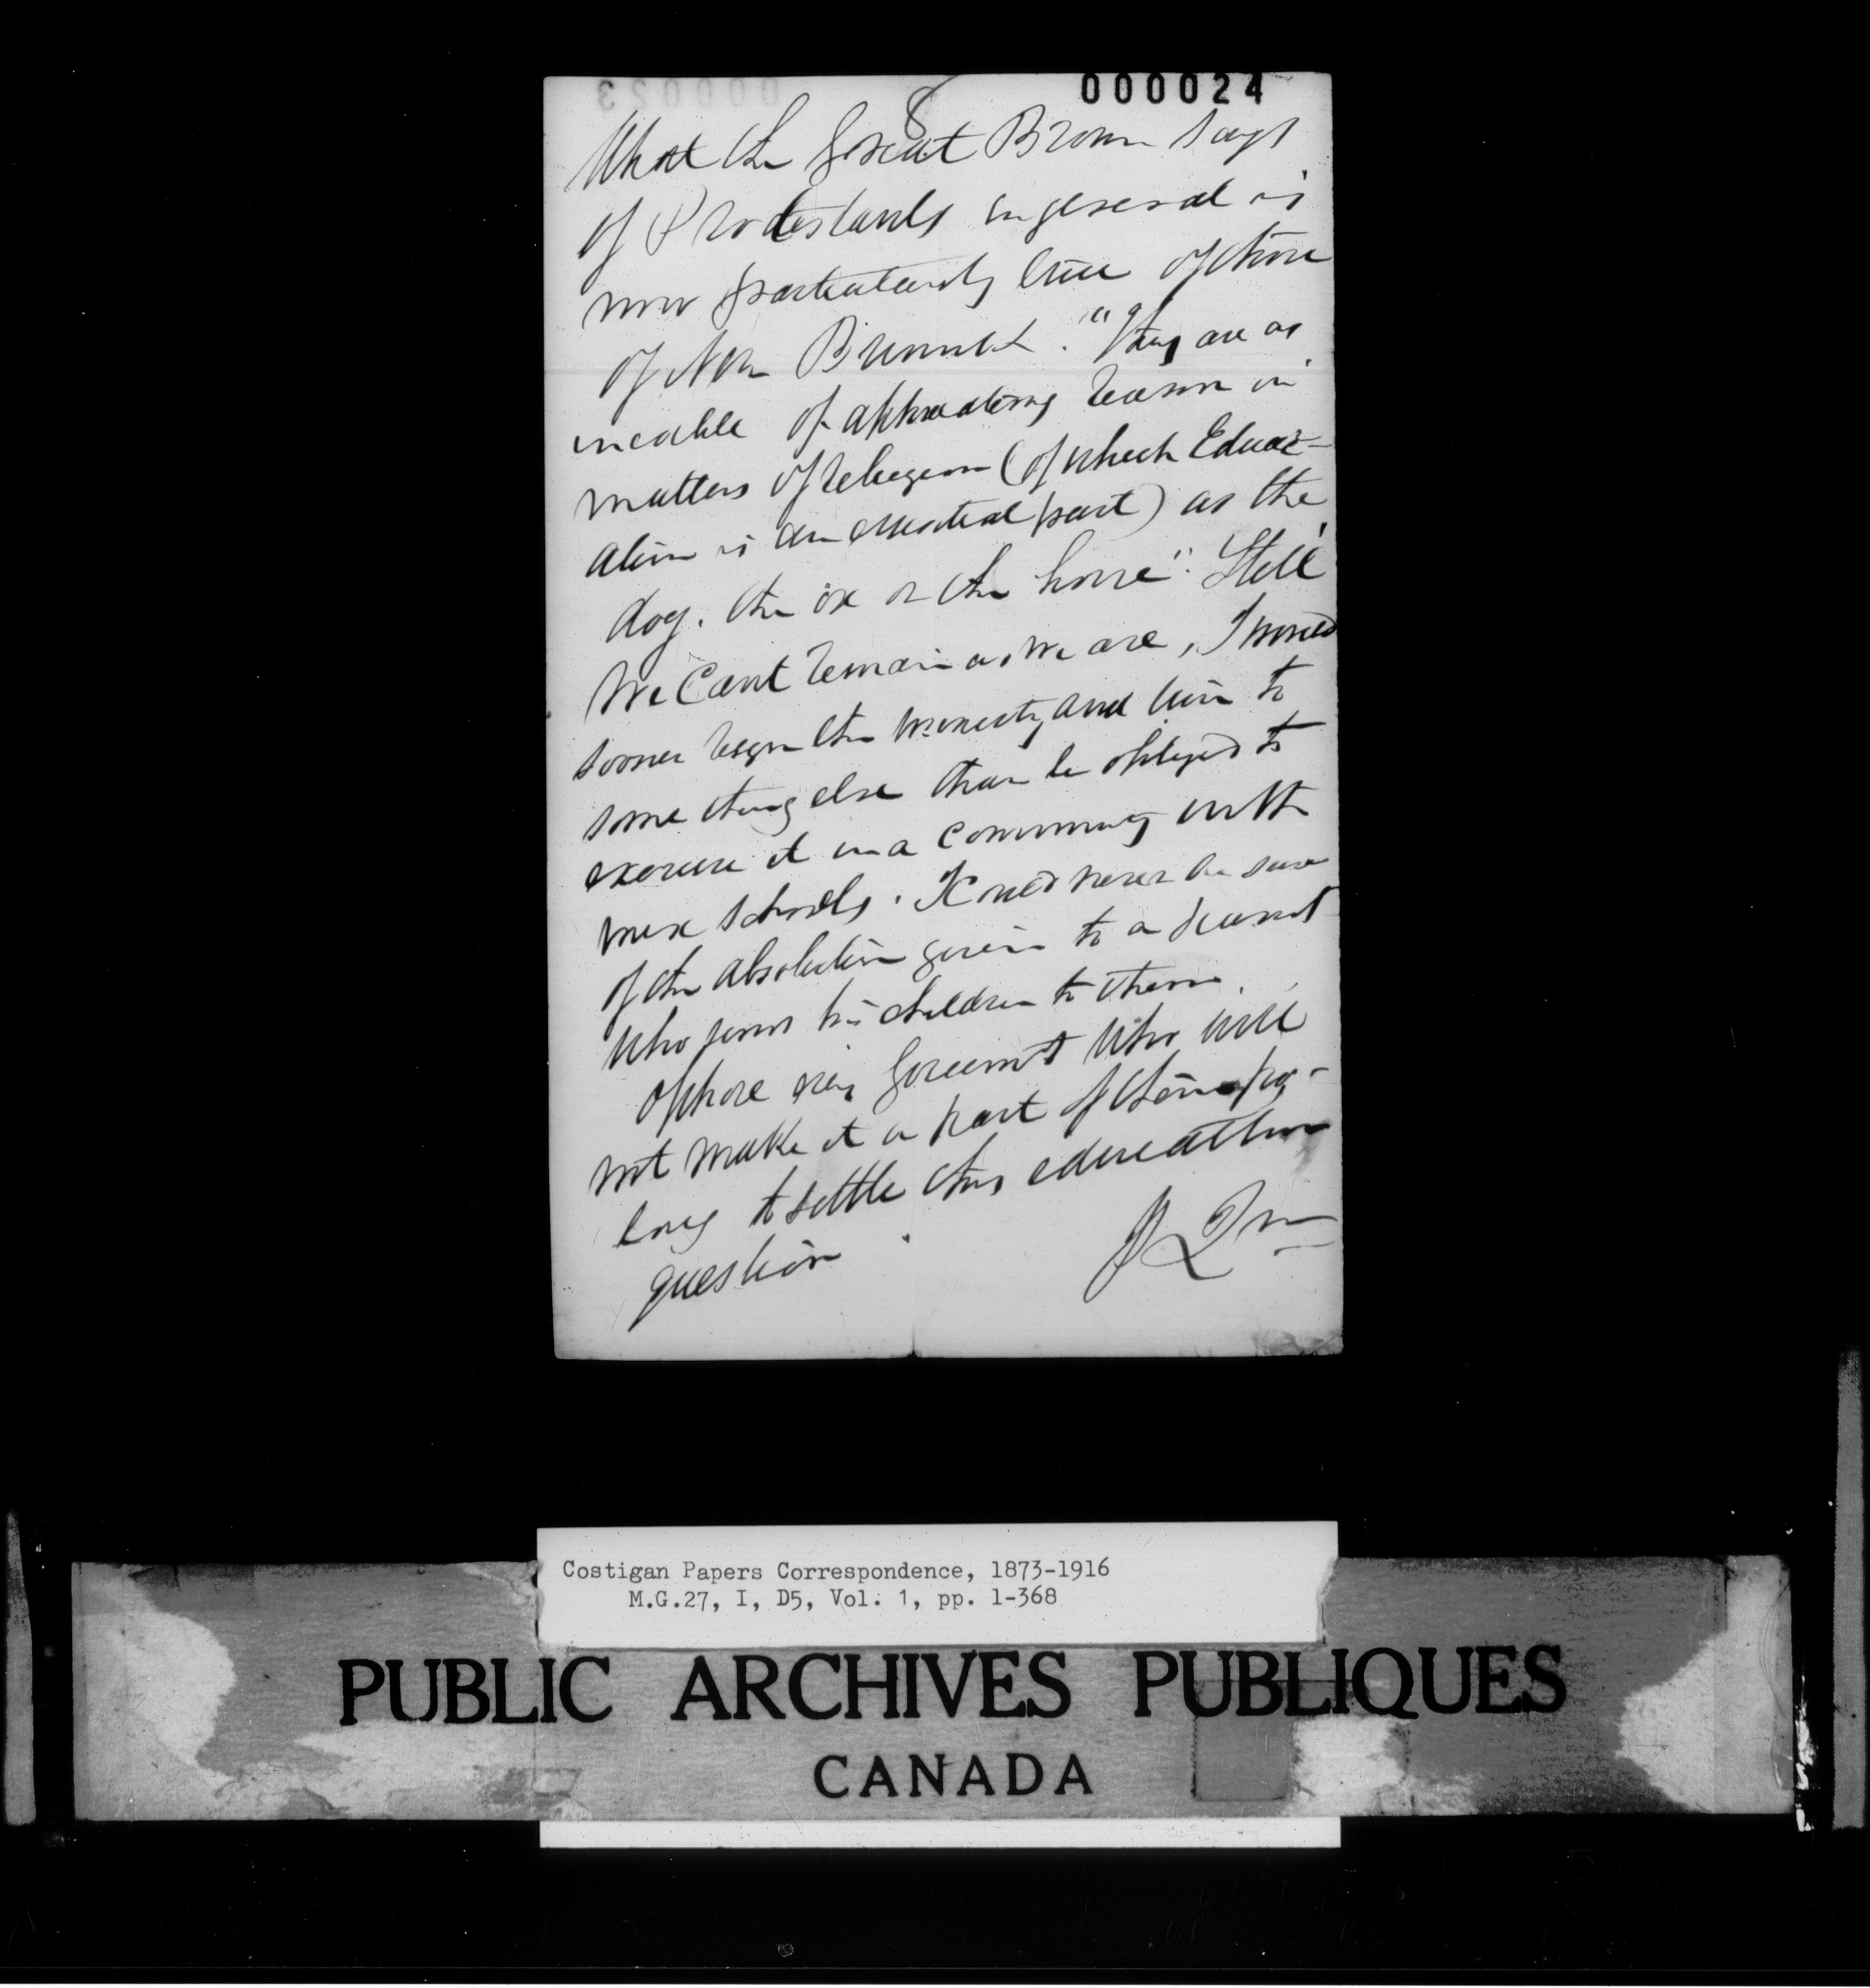 000024
000023
8
What the Great Brown says
of Protestants in general is
now particularly true of those
of New Brunswick. "They are as
incapable of appreciating reason in
matters of religion (of which Educ-
ation is an essential part) as the
dog, the ox or the horse". Still
We Cant remain as we are, I would
sooner resign the ministry and turn to
some thing else than be obliged to
exercise it in a community with
mix schools. I could never be sure
of the absolution given to a parent
who sends his children to them.
Oppose any Goverment who will
not make it a part of their
to settle this education
question
Costigan Papers Correspondence, 1873-1916
M.G.27, I, D5, Vol. 1, pp. 1-368
PUBLIC ARCHIVES PUBLIQUES
CANADA